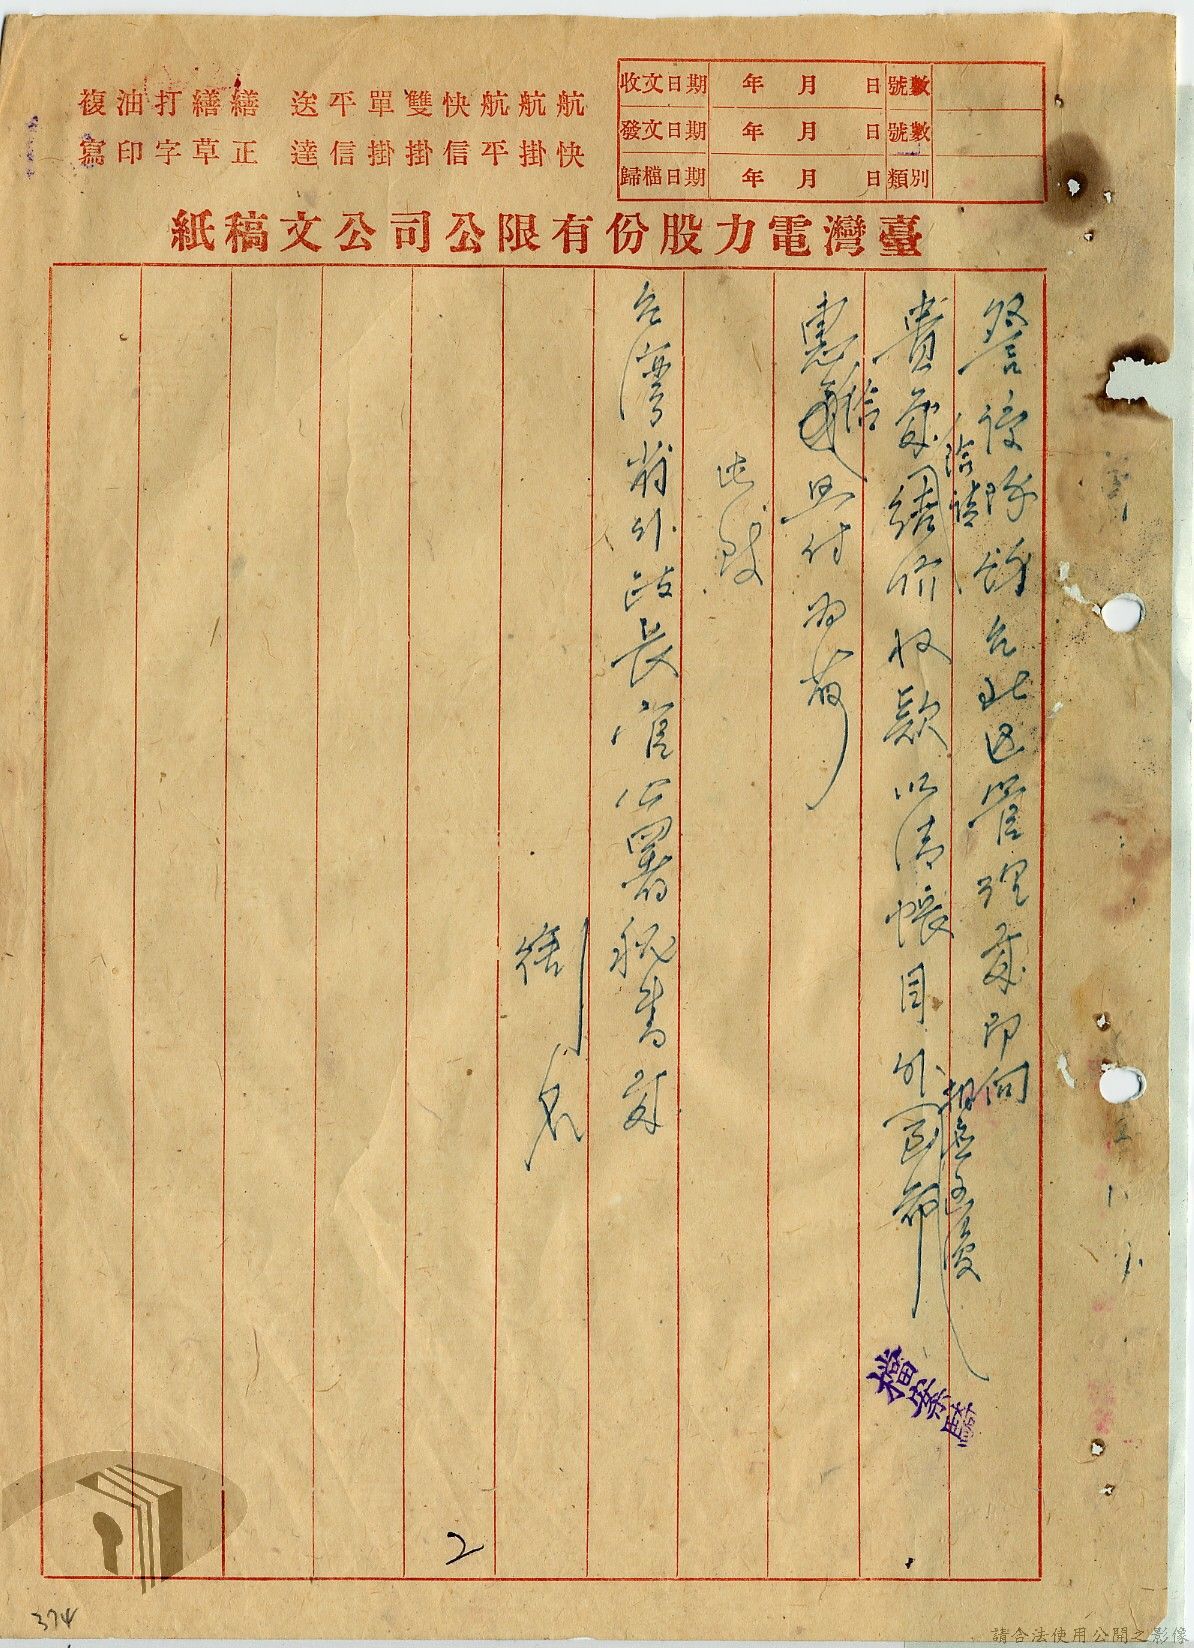 收文日期 年 月 日 號數
發文日期 年 月 日 號數
歸檔日期 年 月 日 類別
航快
航掛
航平
快信
雙掛
單掛
平信
送達
繕正
繕草
打字
油印
複寫
臺灣電力股份有限公司公文稿紙
警設隊飭台北區管理處即向
除請
貴處結價收款以清帳目外
相應函復
惠
洽
照付為荷
此致
台灣省行政長官公署秘書處
銜 名
檔案
2
374
請合法使用公開之影像